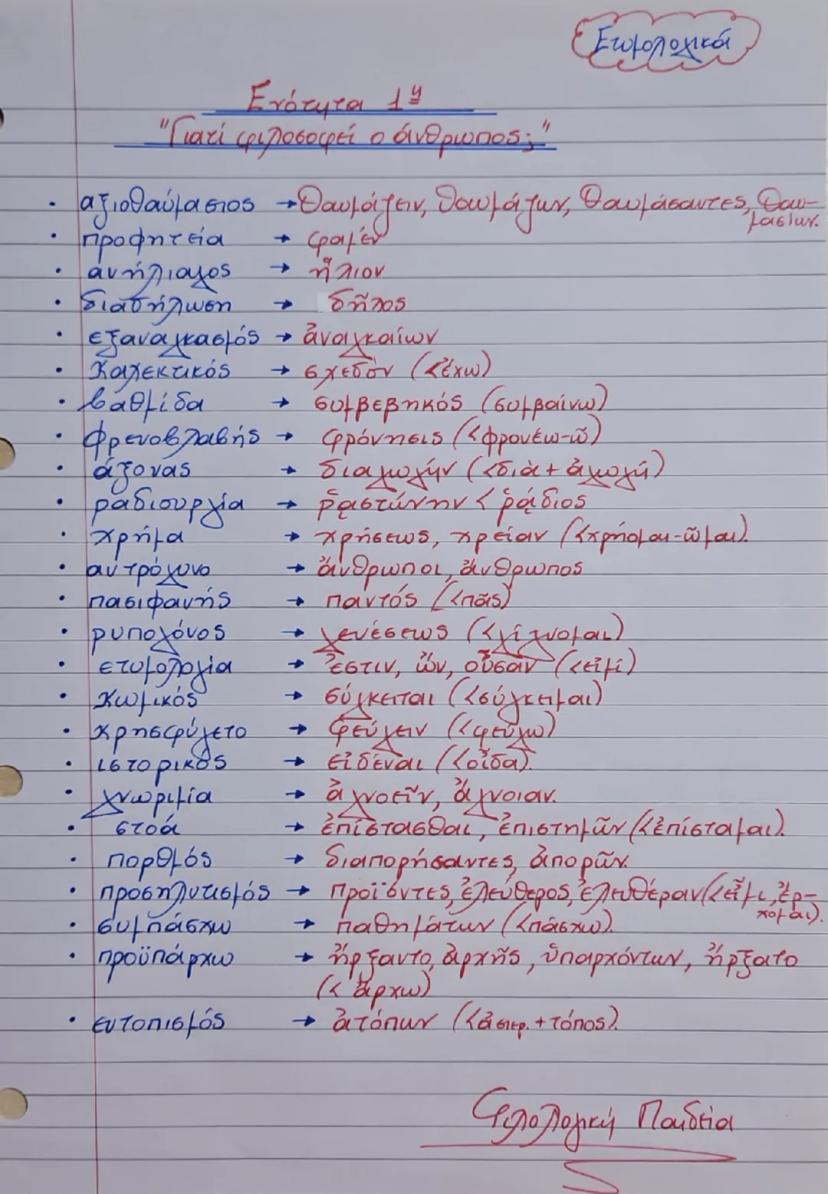 Ετυμολογικά
Ενότητα 1η
"Γιατί φιλοσοφεί ο άνθρωπος;"
· αξιοθαύμαστος → θαυμάζειν, θαυμάζων, θαυμάσαντες, θαυ-
μασίων.
· προφητεία → φαμέν
· ανήλιαγος → ἥλιον
· διασήλωση → δῆλος
· εξαναγκασμός → ἀναγκαίων
· καχεκτικός → σχεδόν (<ἔχω)
· βαθμίδα → συμβεβηκός (συμβαίνω)
· φρενοβλαβής → φρόνησις (<φρονέω-ῶ)
· άξονας → διαγωγήν (<διά + ἀγωγή)
· ραδιουργία → ῥᾳστώνην < ῥᾴδιος
· χρήμα → χρήσεως, χρείαν (<χρήομαι-ῶμαι).
· αντρόγυνο → ἄνθρωποι, ἄνθρωπος
· πασιφανής → παντός (<πᾶς)
· ρυπογόνος → γενέσεως (<γίγνομαι)
· ετυμολογία → ἔστιν, ὤν, οὖσαν (<εἰμί)
· κωμικός → σύγκειται (<σύγκειμαι)
· χρησφύγετο → φεύγειν (<φεύγω)
· ιστορικός → εἰδέναι (<οἶδα).
· γνωριμία → ἀγνοεῖν, ἄγνοιαν.
· στοά → ἐπίστασθαι, ἐπιστημῶν (<ἐπίσταμαι).
· πορθμός → διαπορήσαντες, ἀπορῶν.
· προσηλυτισμός → προϊόντες, ἐλεύθερος, ἐλευθέραν (<εἶμι, ἔρ-
χομαι).
· συμπάσχω → παθημάτων (<πάσχω).
· προϋπάρχω → ἤρξαντο, ἀρχῆς, ὑπαρχόντων, ἤρξατο
(< ἄρχω)
· εντοπισμός → ἀτόπων (<ἀ στερ. + τόπος).
Φιλολογική Παιδεία